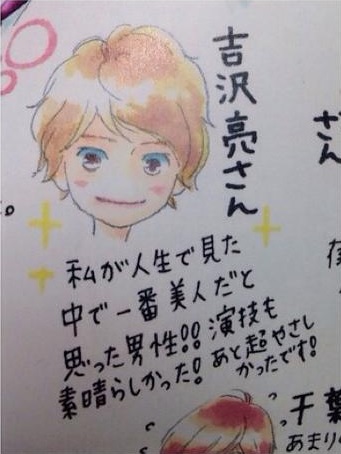 吉沢亮さん
私が人生で見た
中で一番美人だと
思った男性!!演技も
素晴らしかった!あと超やさし
かったです!
さん
千葉
あまりの